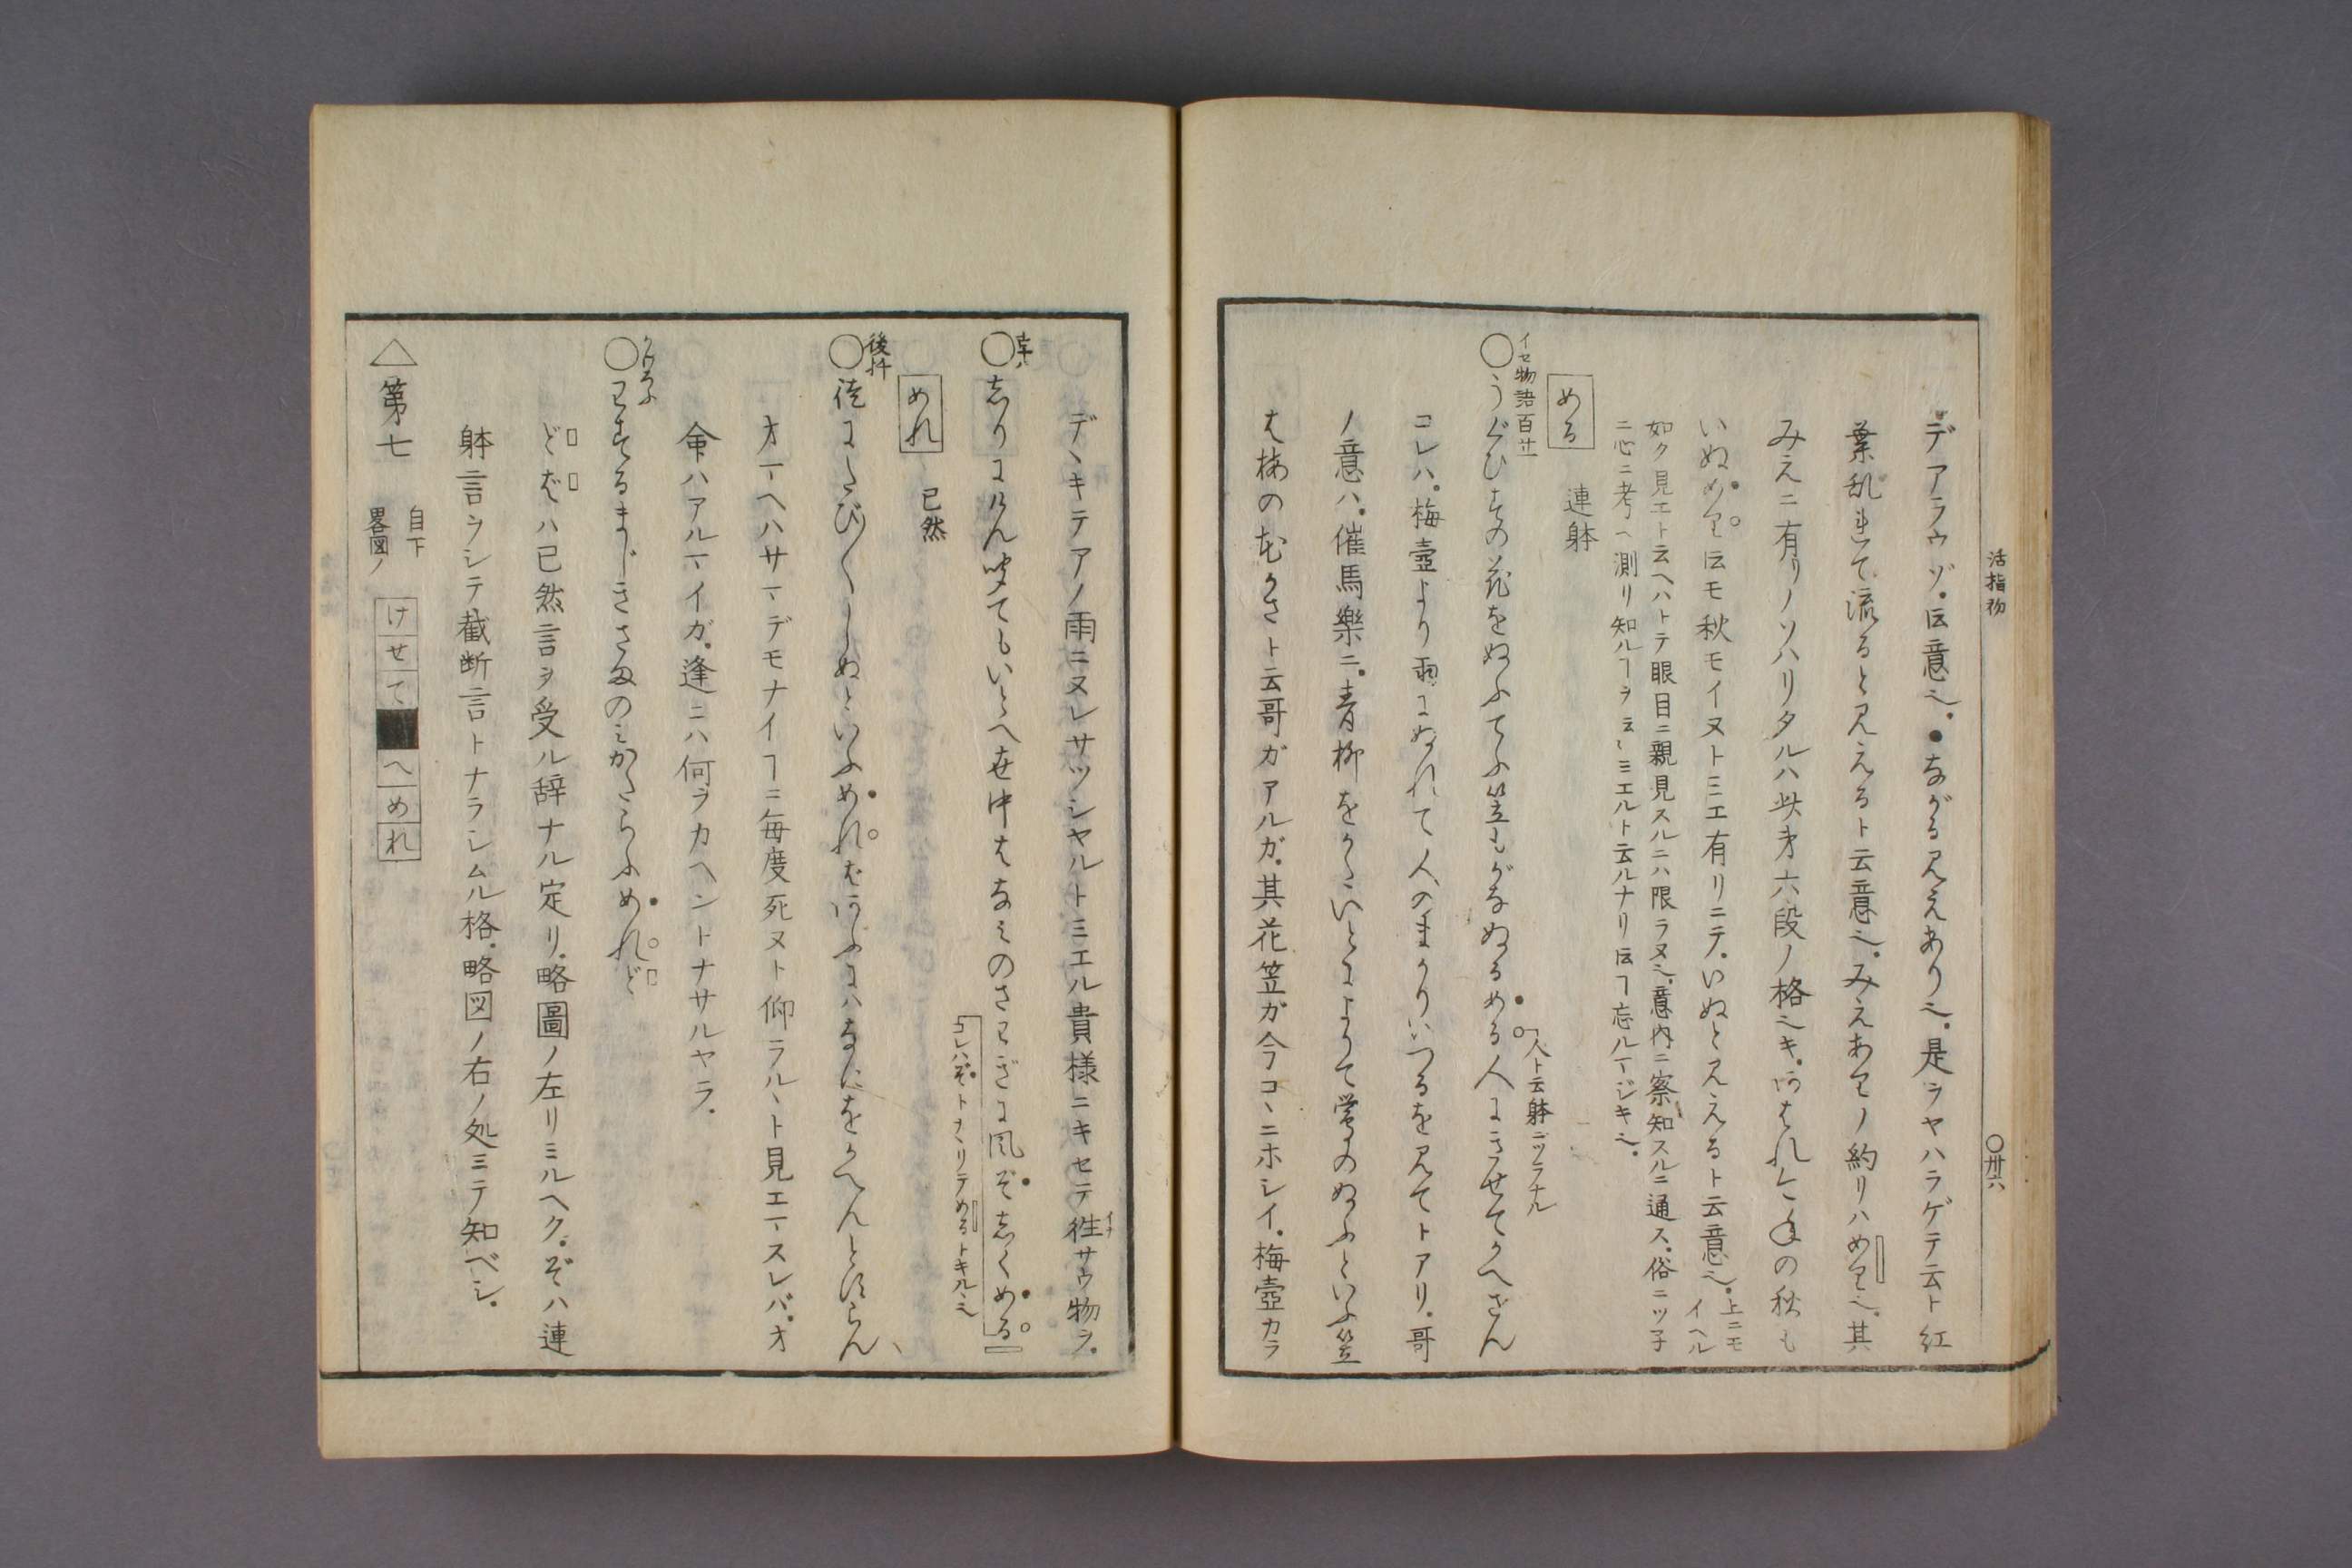 デアラウゾ。㕝意也。●ながる見えあり也。是ヲヤハラゲテ云ト紅
葉乱れて流ると見えるト云意也。みえありノ約リハめり也。其
みえニ有リノソハリタル八此才六段ノ格也キ。あはれことしの秋も
いぬめり㕝モ秋モイヌトミエ有リニテ。いぬと見えるト云意也。上ニモイヘル
如ク見エト云ヘハトテ眼目ニ親見スルニハ限ラヌ也。意内ニ察知スルニ通ス。俗ニツ子
ニ心ニ考へ測リ知ルヿヲ云ミエルト云ルナリ
める 連躰
イセ物語百廿一
○うぐひすの花をぬふてふ笠もがなぬるめる人にきせてかへさん
人ト云躰ニツラナル
コレハ。梅壺より雨にぬれて人のまかりいづるを見てトアリ。哥
ノ意ハ。催馬樂ニ。青柳をかたいとによりて鶯のぬふといふ笠
は梅の花がさト云哥ガアルガ。其花笠ガ今コヽニホシイ。梅壺カラ
活指初
○卅六
デヽキテアノ雨ニヌレサツシヤルトミエル貴様ニキセテ往サウ物ヲ。
○しりにけん聞てもいとへ世中はなみのさわぎに風ぞしくめる
コレハぞトカヽリテめるトキルヽ也
めれ 已然
後拾
○徒にたび〳〵しぬといふめればあふにハなにをかへんとすらん
オマヘハサマデモナイヿニ毎度死ヌト仰ラルヽト見エマスレバ。オ
命ハアルマイガ。逢ニハ何ヲカヘントナサルヤラ。
かげろふ
○わするまじきさまのみかたらふめれど
どばハ已然言ヲ受ル辞ナル定リ。略圖ノ左リミルヘク。ぞハ連
躰言ヲシテ截断言トナラシムル格。略図ノ右ノ処ミテ知ベシ。
△第七 自下畧図ノ けせて■へめれ